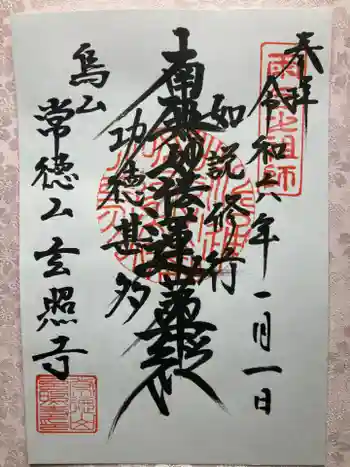 奉拝
令和六年一月一日
如説修行
南無妙法蓮華経
功徳甚多
烏山
常徳山玄照寺